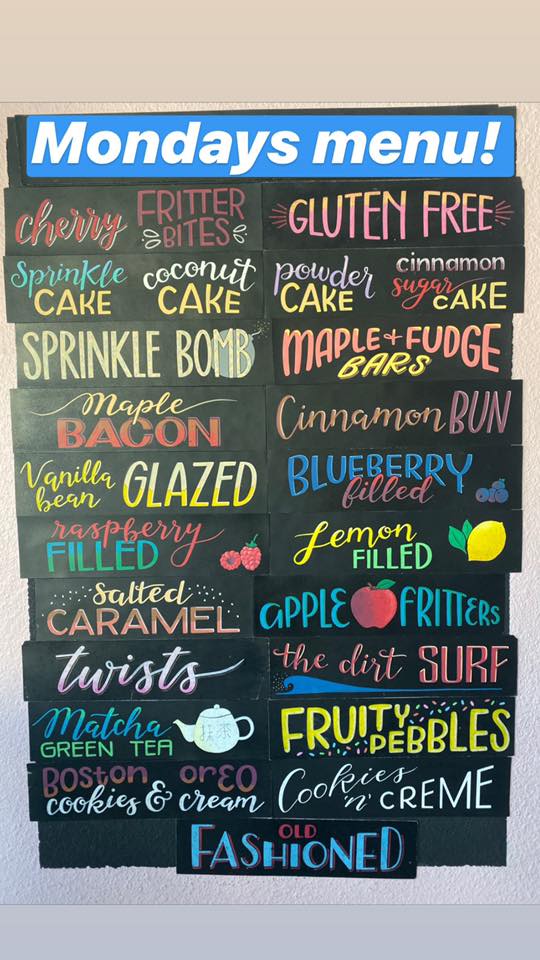 Mondays menu!
cherry FRITTER BITES
GLUTEN FREE
Sprinkle CAKE
coconut CAKE
powder CAKE
cinnamon sugar CAKE
SPRINKLE BOMB
MAPLE + FUDGE
BARS
Maple
BACON
Cinnamon BUN
Vanilla bean GLAZED
BLUEBERRY
filled
raspberry
FILLED
Lemon
FILLED
Salted
CARAMEL
APPLE FRITTERS
twists
the dirt SURF
Matcha
GREEN TEA
抹茶
FRUITY
PEBBLES
BOSTON OREO
cookies & cream
Cookies
'n' CREME
OLD
FASHIONED